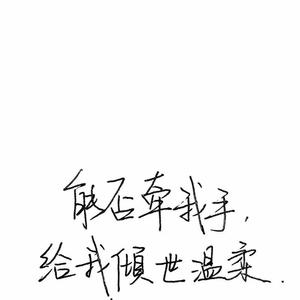 能否牵我手,
给我倾世温柔.